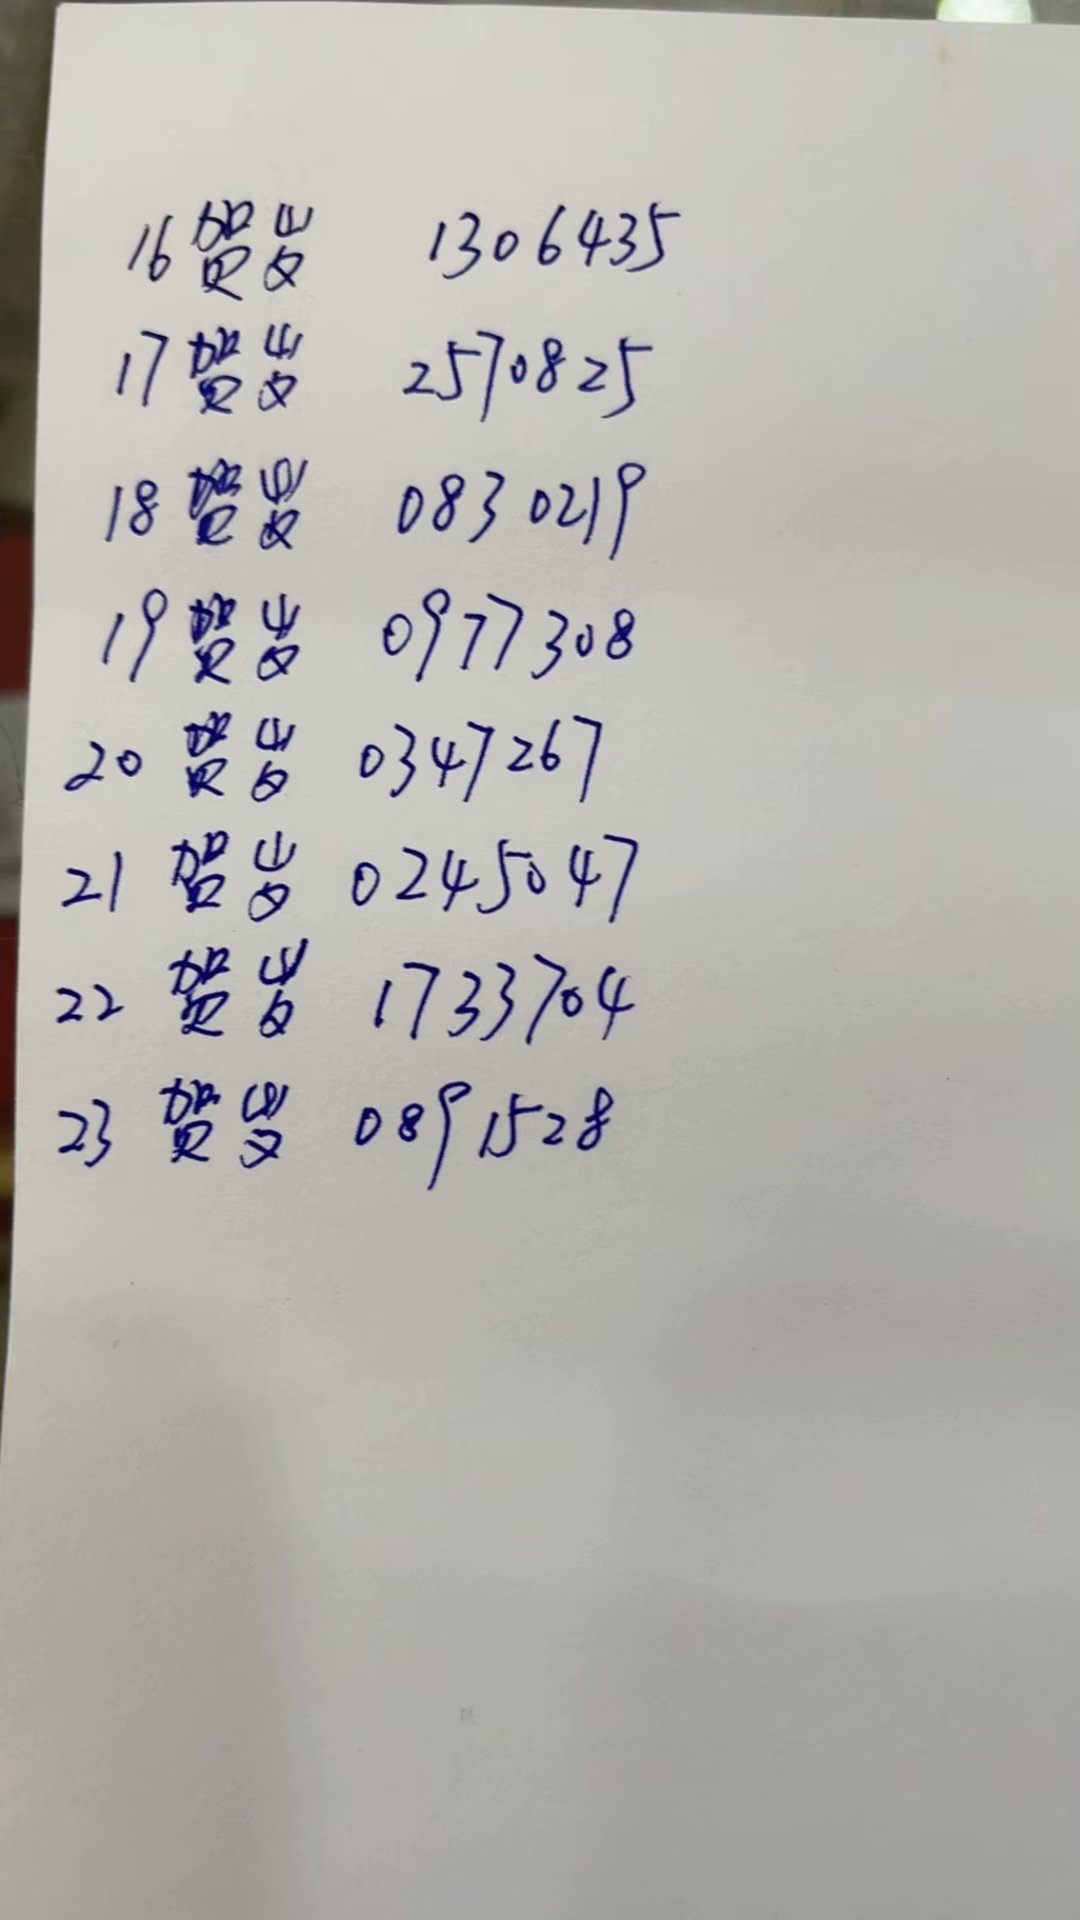 16 贺岁 1306435
17 贺岁 2570825
18 贺岁 0830219
19 贺岁 0977308
20 贺岁 0347267
21 贺岁 0245047
22 贺岁 1733704
23 贺岁 0891528